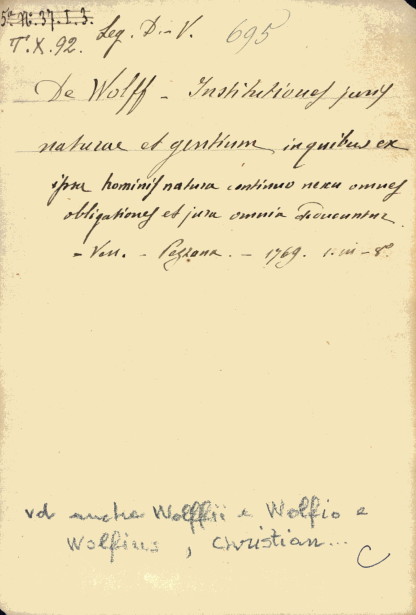 5a N. 37. I. 3.
T. X. 92. Leg. D.-V. 695
De Wolff - Institutiones juris
naturae et gentium in quibus ex
ipsa hominis natura continuo nexu omnes
obligationes et jura omnia deducuntur.
- Ven. - Pezzana. - 1769. - 8°
vd anche Wolffii e Wolfio e
Wolfius, Christian...
C